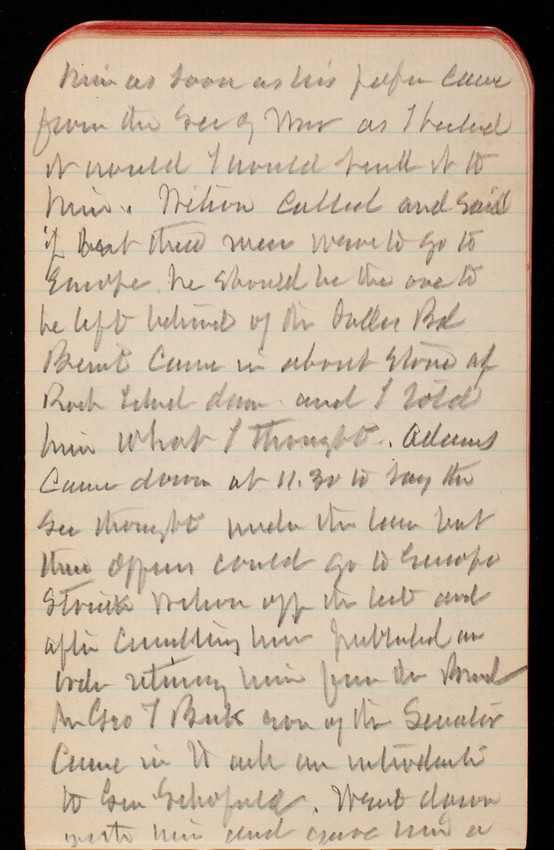 him as soon as his paper came
from the Sec of War as I hoped
it would I would send it to
him. Wilson called and said
if but three men were to go to
Europe he should be the one to
be left behind of the Dalles Bd
Benét came in about Stone at
Rock Island dam and I told
him what I thought. Adams
came down at 11.30 to say the
Sec thought under the law but
three officers could go to Europe
Struck Wilson off the list and
after consulting him published an
order relieving him from the Board
Mr Geo T Buck son of the Senator
Came in to ask an introduction
to Gen Schofield. Went down
with him and gave him a